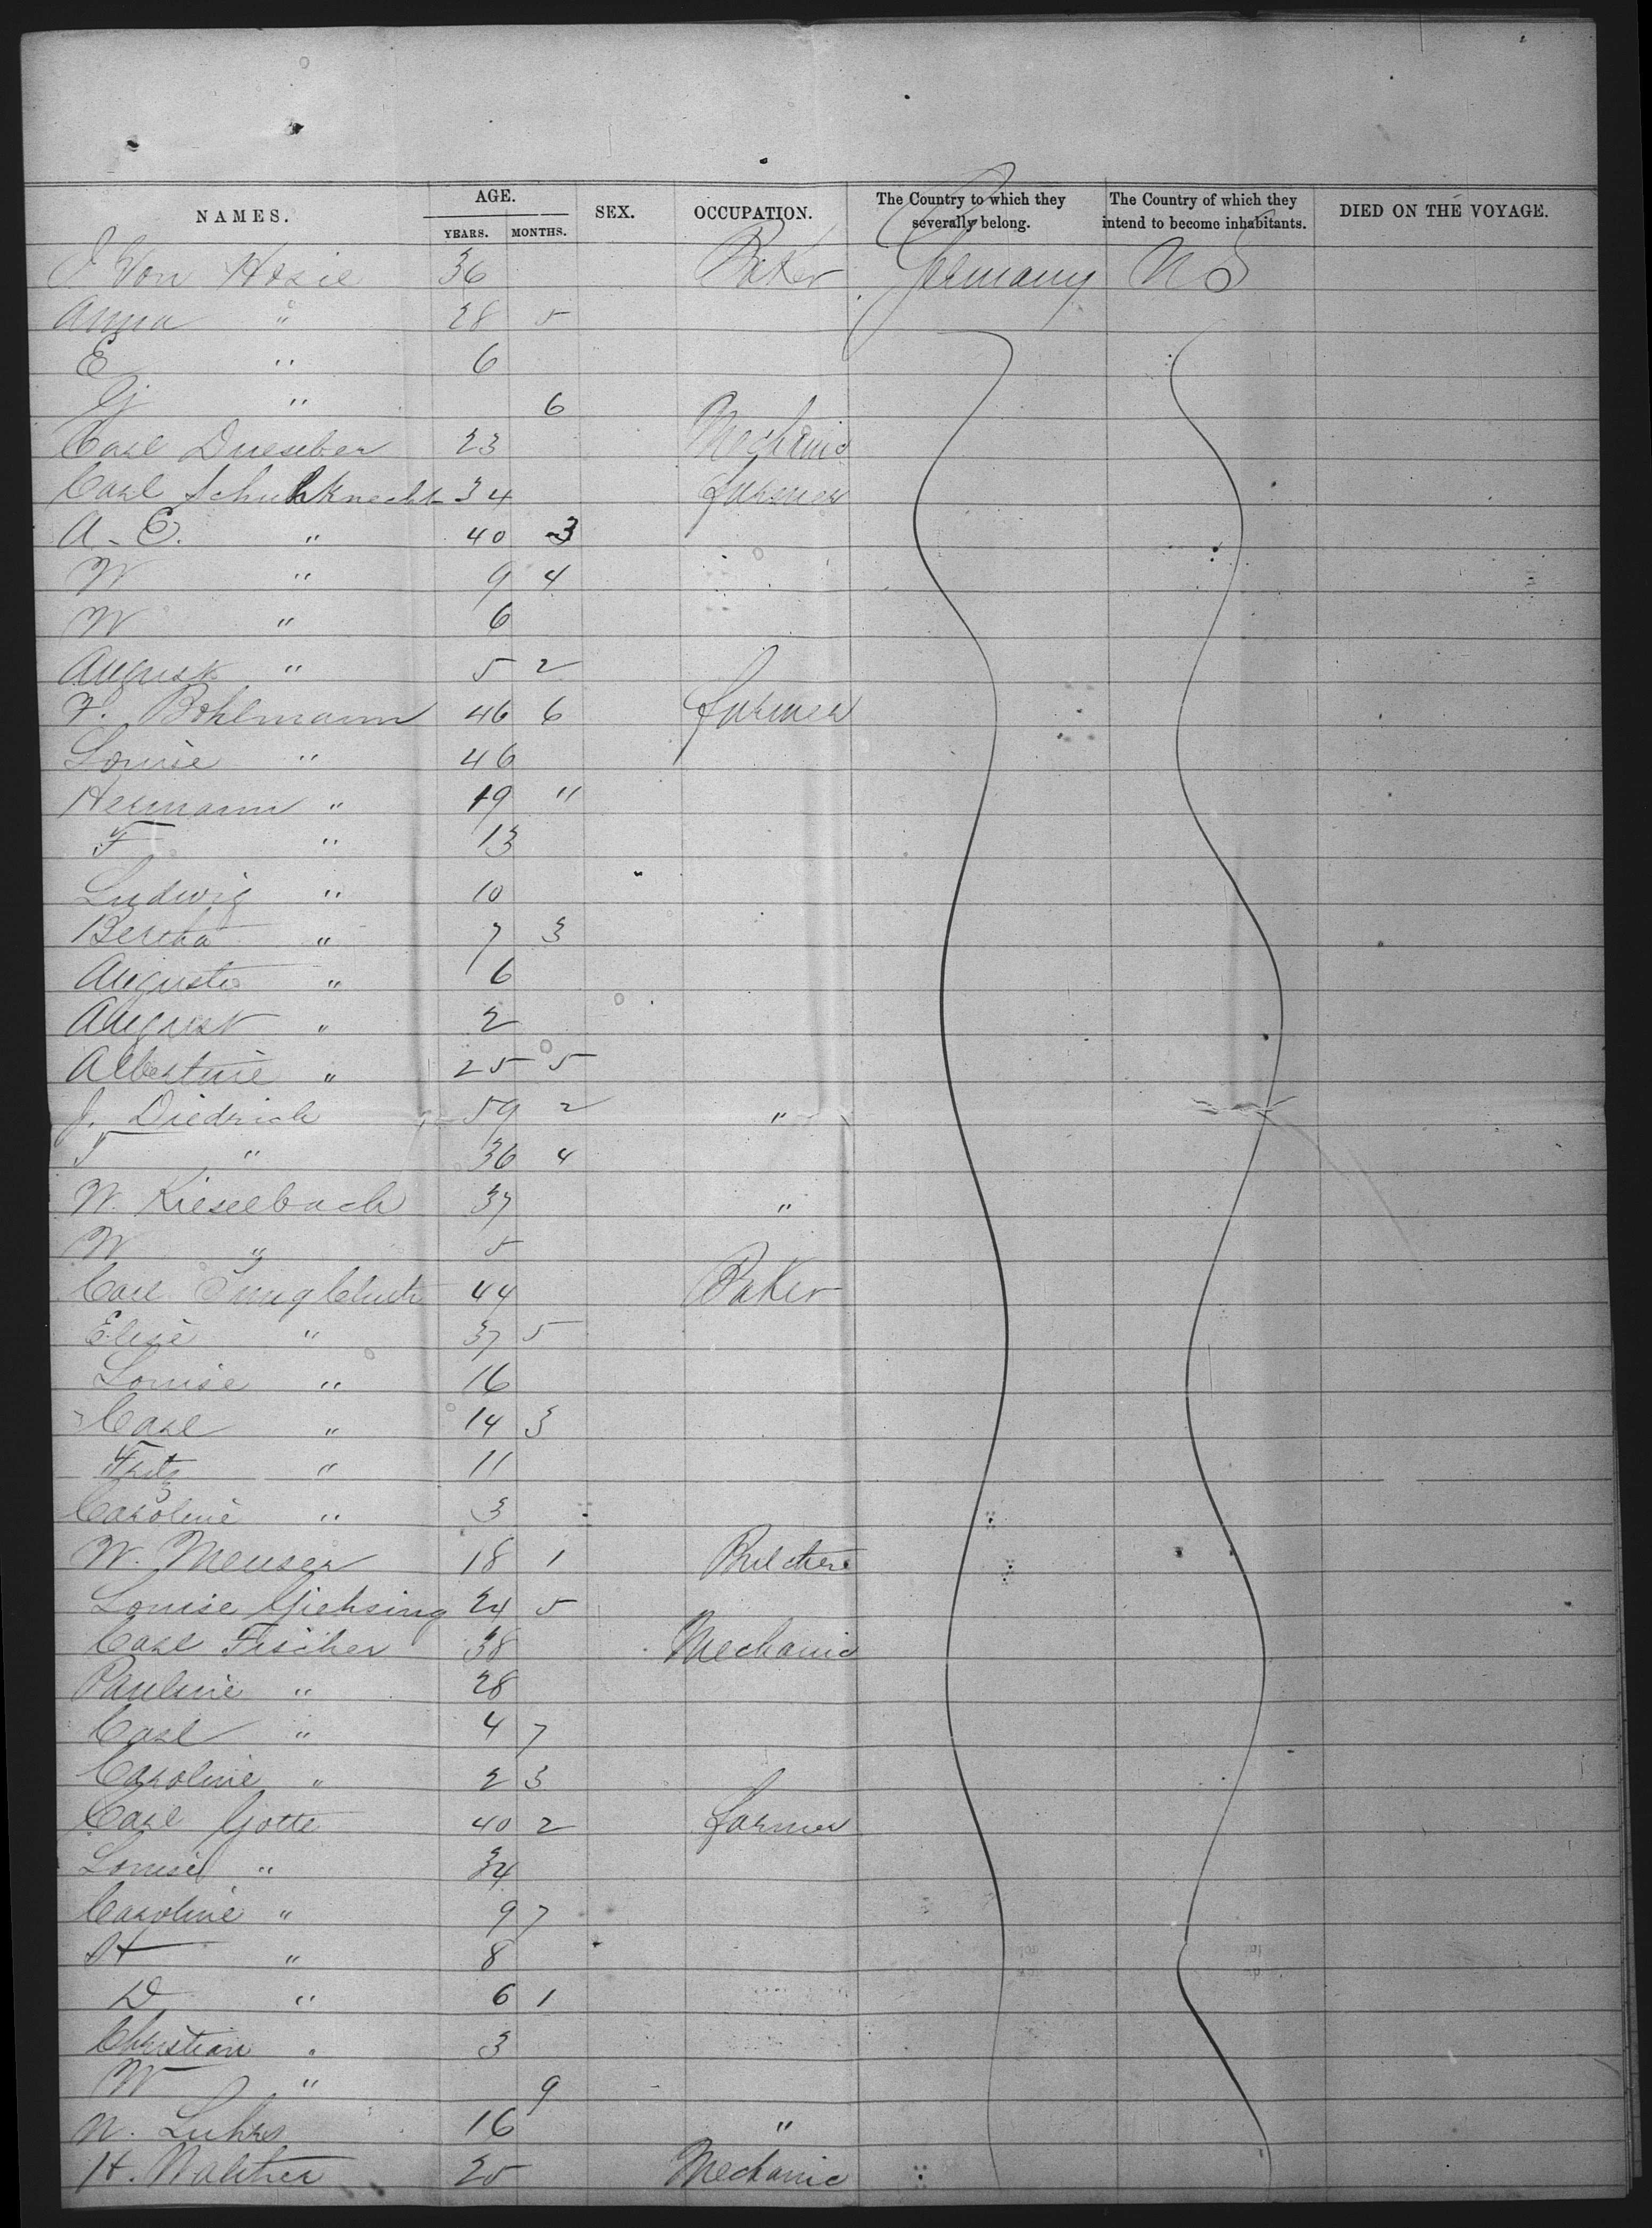 NAMES. AGE. YEARS. MONTHS. SEX. OCCUPATION. The Country to which they severally belong. The Country of which they intend to become inhabitants. DIED ON THE VOYAGE.
J Von 36 Baker Germany US
Anna " 28 5
E " 6
G " 6
Carl Dueseber 23 Mechanic
Carl Schuhknecht 34 farmer
A. E. " 40 3
W " 9 4
W " 6
August " 5 2
F. Bohlmann 46 6 farmer
Louise " 46
Hermann " 19 "
F " 13
Ludwig " 10
Bertha " 7 3
Auguste " 6
August " 2
Albertine " 25 5
J. Diedrich 59 2 "
T " 36 4
W. Kieselbach 37 "
W " 5
Carl 44 Baker
Elise " 37 5
Louise " 16
Carl " 14 3
Fritz " 11
Caroline " 3
W. Meuser 18 1 Butcher
Louise Giehsing 24 5
Carl Fischer 38 Mechanic
Pauline " 28
Carl " 4 7
Caroline " 2 3
Carl Gotte 40 2 farmer
Louise " 34
Caroline " 9 7
H " 8
D " 6 1
Christian " 3
W " 9
N. Luhrs 16 "
H. Walther 25 Mechanic